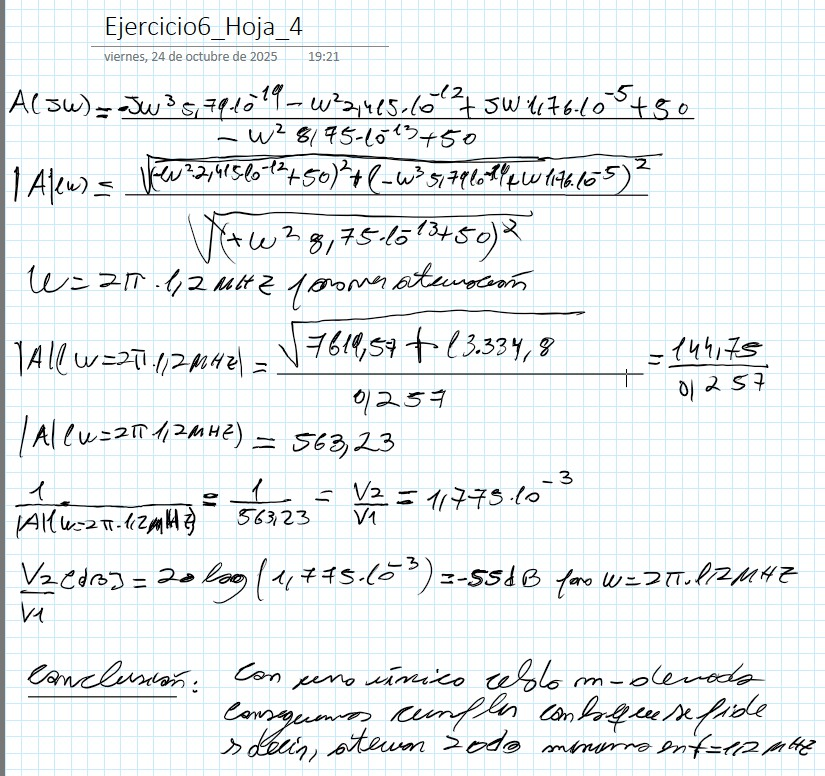 Ejercicio6_Hoja_4
viernes, 24 de octubre de 2025 19:21
A(Jw) = -Jw³ 5,79·10⁻¹⁹ - w² 2,415·10⁻¹² + Jw 1,176·10⁻⁵ + 50
- w² 8,75·10⁻¹³ + 50
|A|(w) = √(-w² 2,415·10⁻¹² + 50)² + (-w³ 5,79·10⁻¹⁹ + w 1,176·10⁻⁵)²
√(+w² 8,75·10⁻¹³ + 50)²
w = 2π·1,2 MHZ atenuación
|A|(w=2π·1,2MHZ) = √7619,57 + 13.334,8 = 144,75
0,257 0,257
|A|(w=2π·1,2MHZ) = 563,23
1 = 1 = V2 = 1,775·10⁻³
|A|(w=2π·1,2MHZ) 563,23 V1
V2 [dB] = 20 log (1,775·10⁻³) = -55dB para w=2π·1,2MHZ
V1
Conclusión: Con una única celda m-derivada
conseguimos cumplir con lo que se pide
es decir, atenuar 20dB mínimo en f=1,2MHZ